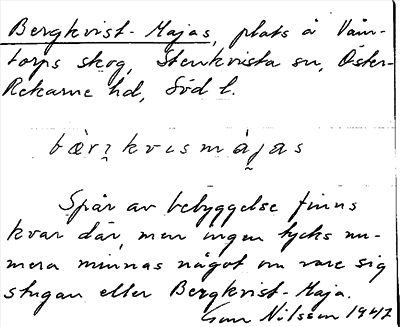 Bergkvist-Majas, plats å Våm-
torps skog, Stenkvista sn, Öster-
Rekarne hd, Södl.
bær̥kvismåjas
Spår av bebyggelse finns
kvar där, men ingen tycks nu-
mera minnas något om vare sig
stugan eller Bergkvist-Maja.
Nilsson 1947